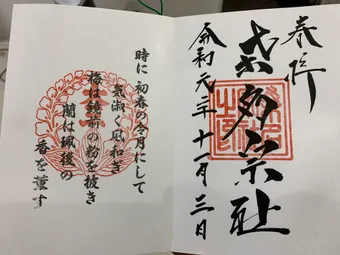 奉拝
桑名宗社
令和元年十一月三日
時に初春の令月にして
気淑く風和ぎ
梅は鏡前の粉を披き
蘭は珮後の
香を薫す